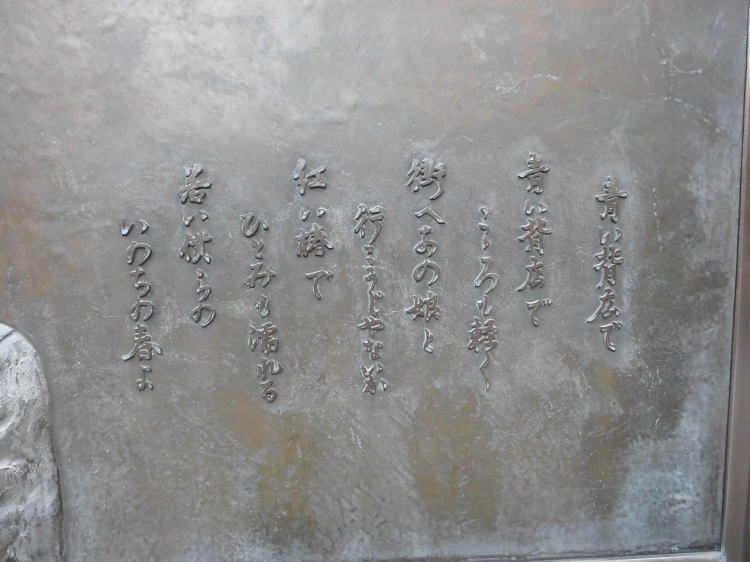 青い背広で
青い背広で
こゝろも軽く
街へあの娘と
行こうじやないか
紅い椿で
ひとみも濡れる
若い僕らの
いのちの春よ